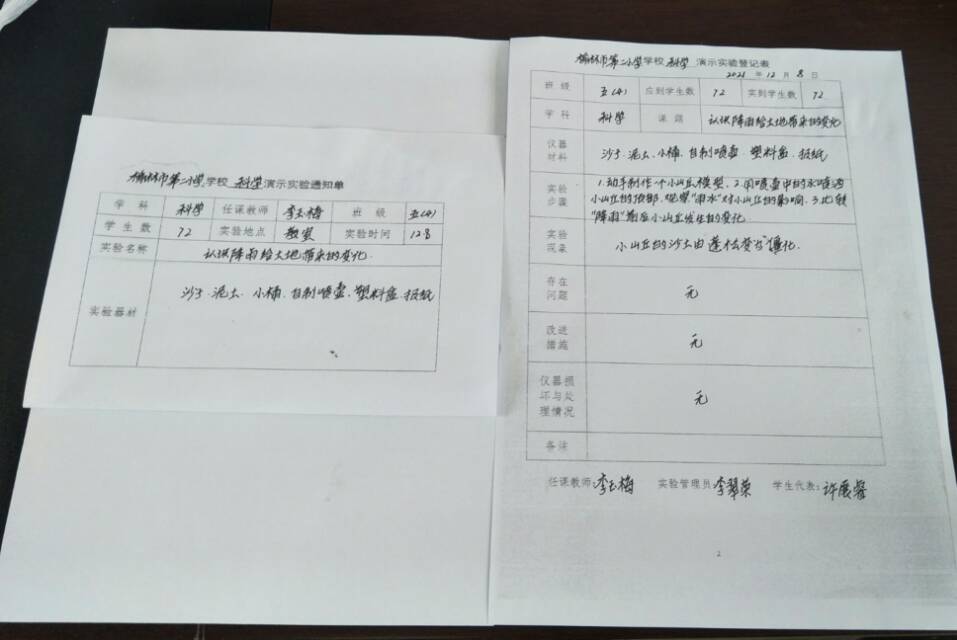 榆林市第二小学学校 科学 演示实验通知单
学科 科学 任课教师 李玉梅 班级 五(4)
学生数 72 实验地点 教室 实验时间 12.8
实验名称 认识降雨给大地带来的变化
实验器材 沙子、泥土、小桶、自制喷壶、塑料盒、报纸
榆林市第二小学学校 科学 演示实验登记表
2021年12月8日
班级 五(4) 应到学生数 72 实到学生数 72
学科 科学 课题 认识降雨给大地带来的变化
仪器材料 沙子、泥土、小桶、自制喷壶、塑料盒、报纸
实验步骤 1.动手制作一个小山丘模型、2.用喷壶中的水喷洒
小山丘的顶部,观察"雨水"对小山丘的影响、3.比较
"降雨"前后小山丘发生的变化
实验现象 小山丘的沙土由蓬松变
存在问题 无
改进措施 无
仪器损坏与处理情况 无
备注
任课教师:李玉梅 实验管理员:李翠荣 学生代表:许展
2